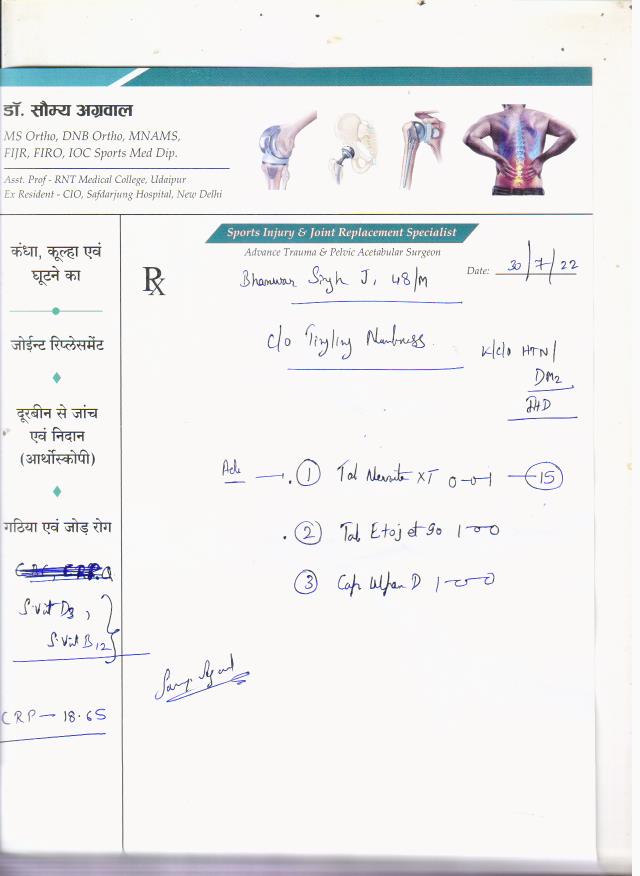 डॉ. सौम्य अग्रवाल
MS Ortho, DNB Ortho, MNAMS,
FIJR, FIRO, IOC Sports Med Dip.
Asst. Prof - RNT Medical College, Udaipur
Ex Resident - CIO, Safdarjung Hospital, New Delhi
Sports Injury & Joint Replacement Specialist
Advance Trauma & Pelvic Acetabular Surgeon
Date: 30/7/22
Rx
Bhanwar Singh J, 48/M
c/o Tingling Numbness.
K/c/o HTN/
DM2
कंधा, कूल्हा एवं
घूटने का
जोईन्ट रिप्लेसमेंट
दूरबीन से जांच
एवं निदान
(आर्थोस्कोपी)
गठिया एवं जोड़ रोग
S. Vit D3,
S. Vit B12
CRP - 18.65
1 Tab XT 0-0-1 - 15
2 Tab 90 1-0-0
3 Cap D 1-0-0